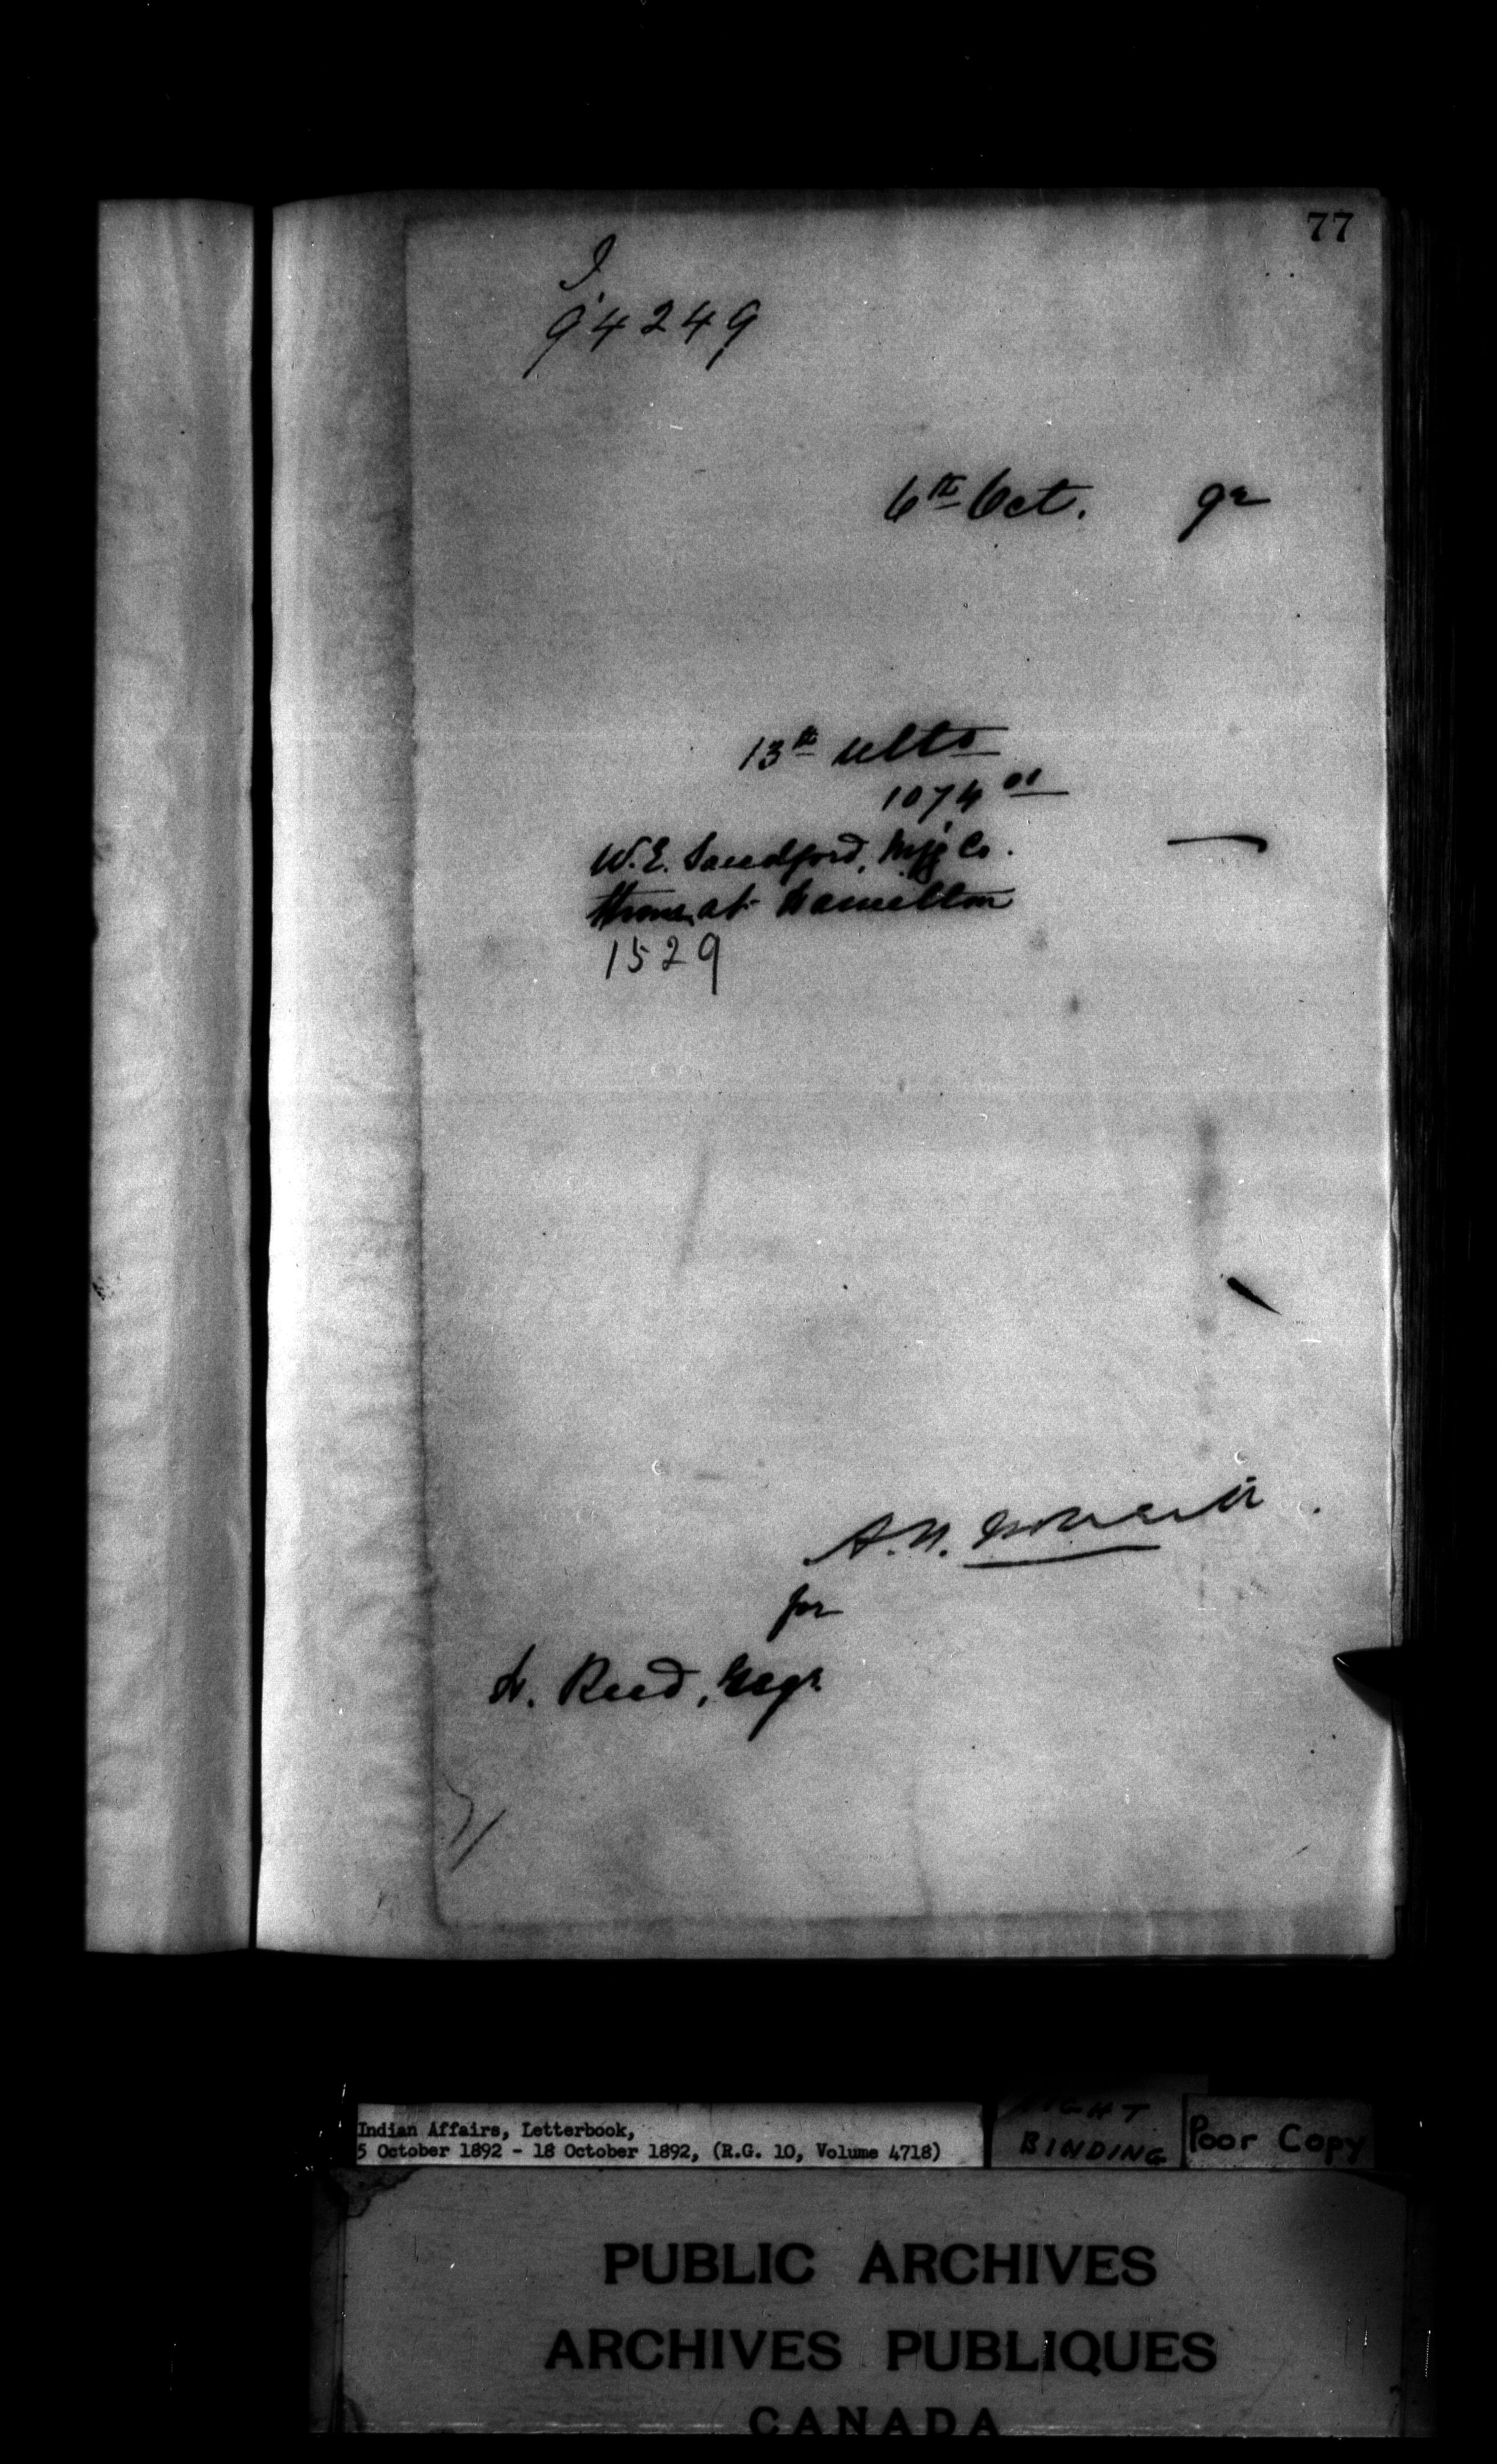 77
I
94249
6th Oct. 92
13th ulto
1074 01
W. E. Sandford, Mfg Co.
them at Hamilton
1529
A. N.
for
H. Reed, Esqr.
Indian Affairs, Letterbook,
5 October 1892 - 18 October 1892, (R.G. 10, Volume 4718)
BINDING
Poor Copy
PUBLIC ARCHIVES
ARCHIVES PUBLIQUES
CANADA